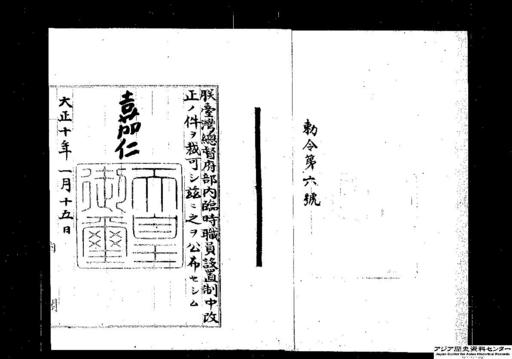 勅令第六號
朕臺灣總督府部内臨時職員設置制中改
正ノ件ヲ裁可シ茲ニ之ヲ公布セシム
嘉仁
天皇御璽
大正十年一月十五日
アジア歴史資料センター
Japan Center for Asian Historical Records